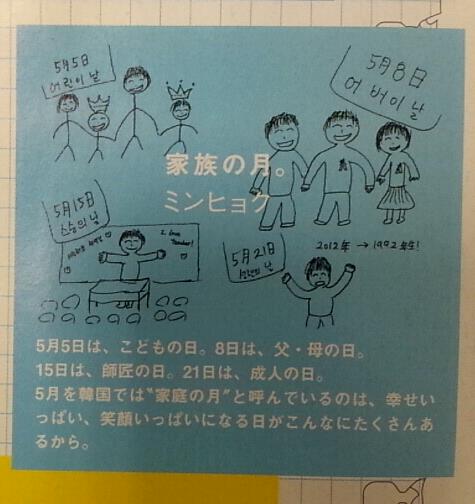 5月5日
어린이 날
5月8日
어버이날
家族の月。
ミンヒョク
5月15日
스승의 날
I Love
Teacher!
5月21日
2012年 → 1992年生!
5月5日は、こどもの日。8日は、父・母の日。
15日は、師匠の日。21日は、成人の日。
5月を韓国では“家庭の月”と呼んでいるのは、幸せい
っぱい、笑顔いっぱいになる日がこんなにたくさんあ
るから。